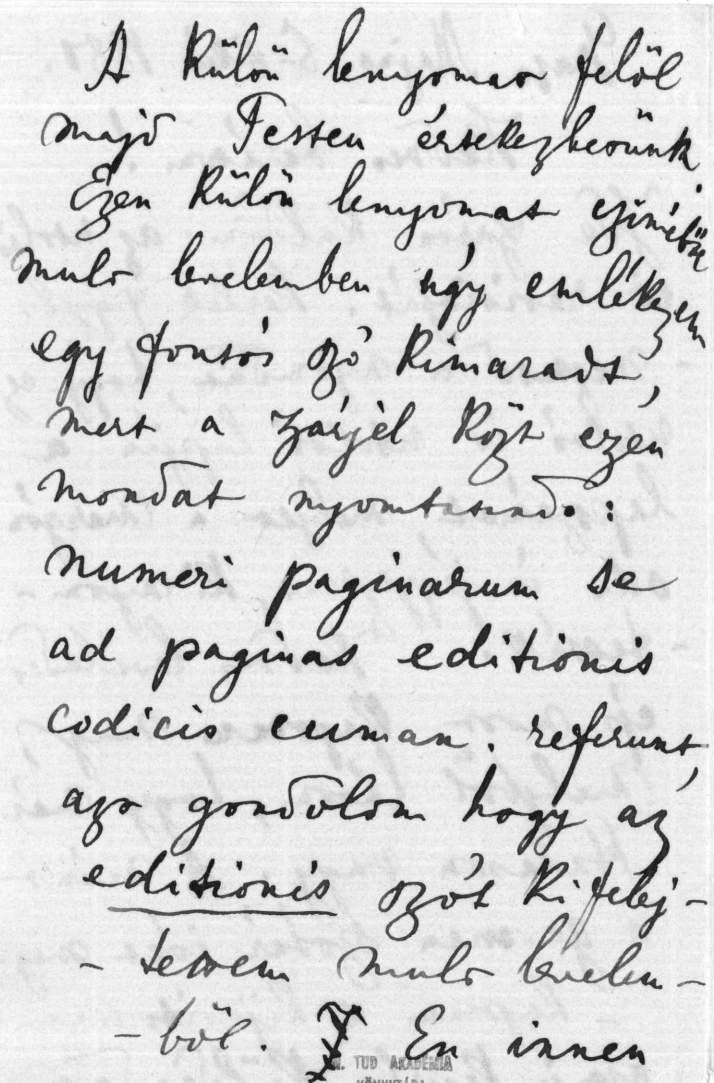 A külön lenyomat felől
majd Testen értekezhetünk.
Ezen külön lenyomat czímébűl
mult levelemben úgy emlékezem
egy fontós szó kimaradt,
mert a zárjèl közt ezen
mondat nyomtatand. :
numeri paginarum se
ad paginas editionis
codicis cuman. referunt,
azt gondolom hogy az
editionis szót kifelej-
- tettem mult levelem-
- ből. En innen
M. TUD AKADÉMIA
KÖNYVTÁRA